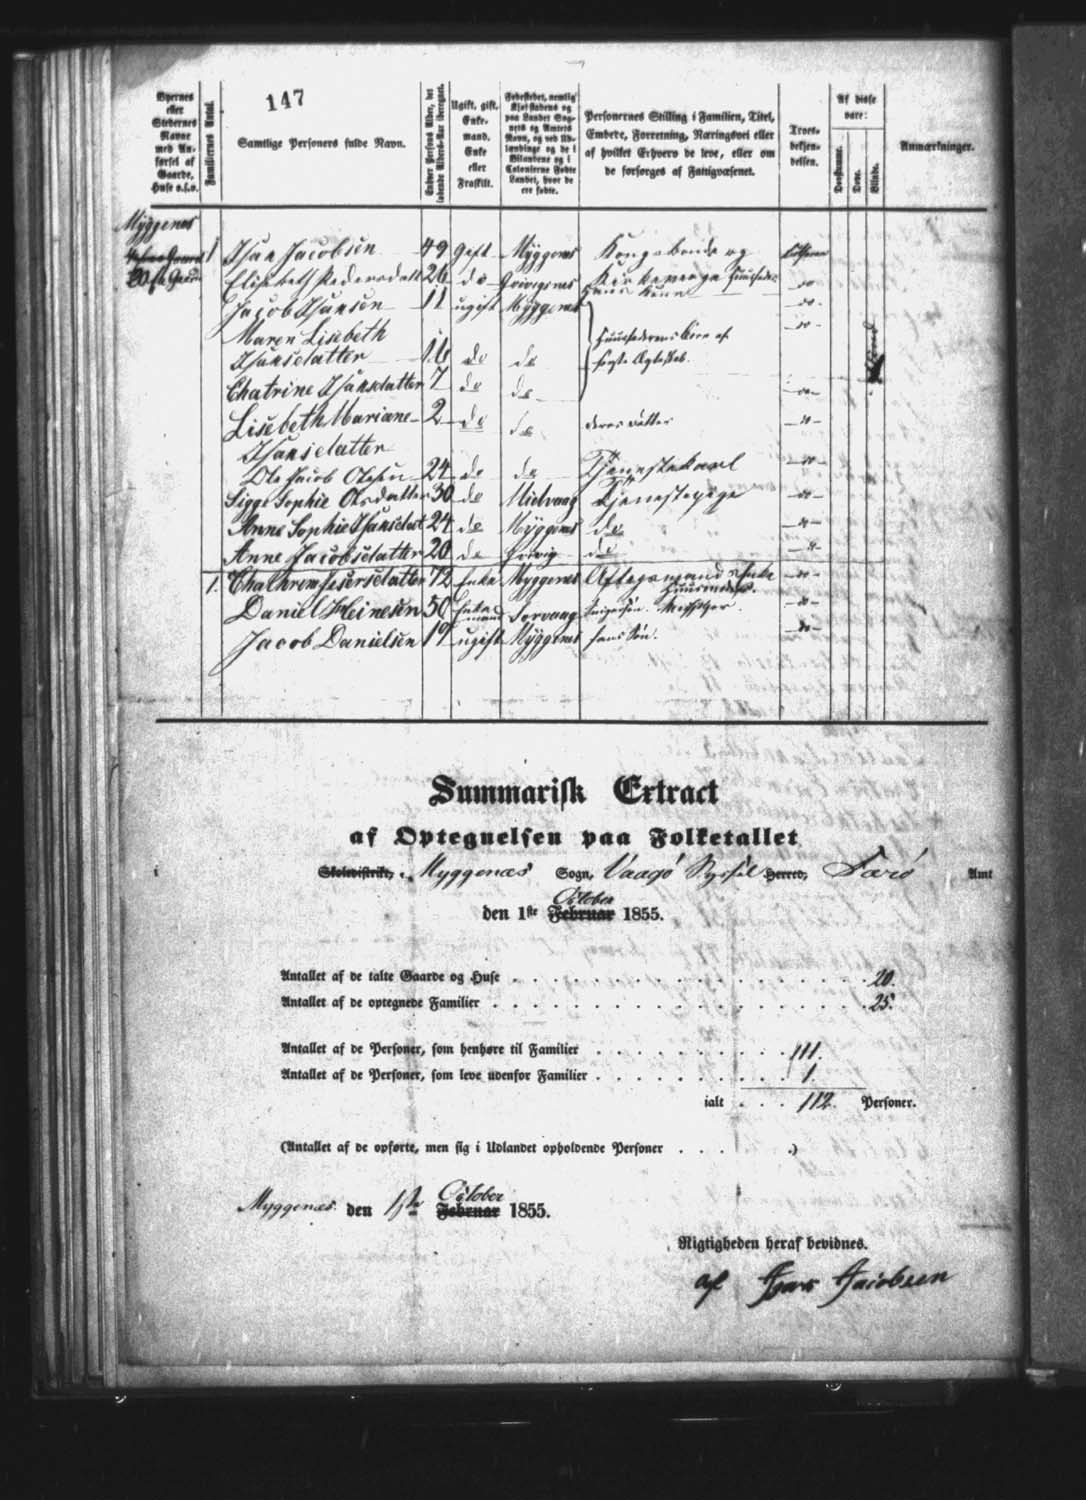 147
Byernes eller Stedernes Navne med Anførsel af Gaarde, Huse o.s.v.
Familiernes Antal.
Samtlige Personers fulde Navn.
Enhver Persons Alder, det løbende Alders-Aar iberegnet.
Ugift, gift, Enkemand, Enke eller Fraskilt.
Fødestedet, nemlig Kjøbstadens og paa Landet Sognets og Amtets Navn, og ved Udlændinge og de i Bilandene og i Colonierne Fødte Landet, hvor de ere fødte.
Personernes Stilling i Familien, Titel, Embede, Forretning, Næringsvei eller af hvilket Erhverv de leve, eller om de forsørges af Fattigvæsenet.
Troesbekjendelsen.
Af disse vare:
Døvstumme.
Døve.
Blinde.
Anmærkninger.
Myggenes
20 Gaard 1 Hans Jacobsen 49 Gift Myggenes Kongsbonde og Luthersk
Elisabeth Pedersdatter 26 do Kirkeværge hans Kone do
Jacob Hansen 11 ugift Myggenes do
Maren Lisebeth Huusfaderens Børn af do
Hansdatter 16 do do første Ægteskab.
Chatrine Hansdatter 7 do do do
Lisebeth Mariane 2 do do deres Datter do
Hansdatter
Ole Jacob Olesen 24 do do Tjenestekarl do
Sigge Sophie Olsdatter 30 do Midvaag Tjenestepige do
Anne Sophie Hansdat 24 do Myggenes do do
Anne Jacobsdatter 20 do do do
1. 72 Enke Myggenes Aftægtsmands Enke do
Daniel Heinesen 50 Enkemand Sorvaag do
Jacob Danielsen 19 ugift Myggenes hans Søn. do
Summarisk Extract
af Optegnelsen paa Folketallet
Skoledistrikt, i Myggenæs Sogn, Vaagø Syssel Herred, Færø Amt
October
den 1ste Februar 1855.
Antallet af de talte Gaarde og Huse . . . 20.
Antallet af de optegnede Familier . . . 25.
Antallet af de Personer, som henhøre til Familier . . . 111.
Antallet af de Personer, som leve udenfor Familier . . . 1.
ialt . . . 112. Personer.
(Antallet af de opførte, men sig i Udlandet opholdende Personer . . . .)
October
Myggenæs den 1ste Februar 1855.
Rigtigheden heraf bevidnes.
af Hans Jacobsen